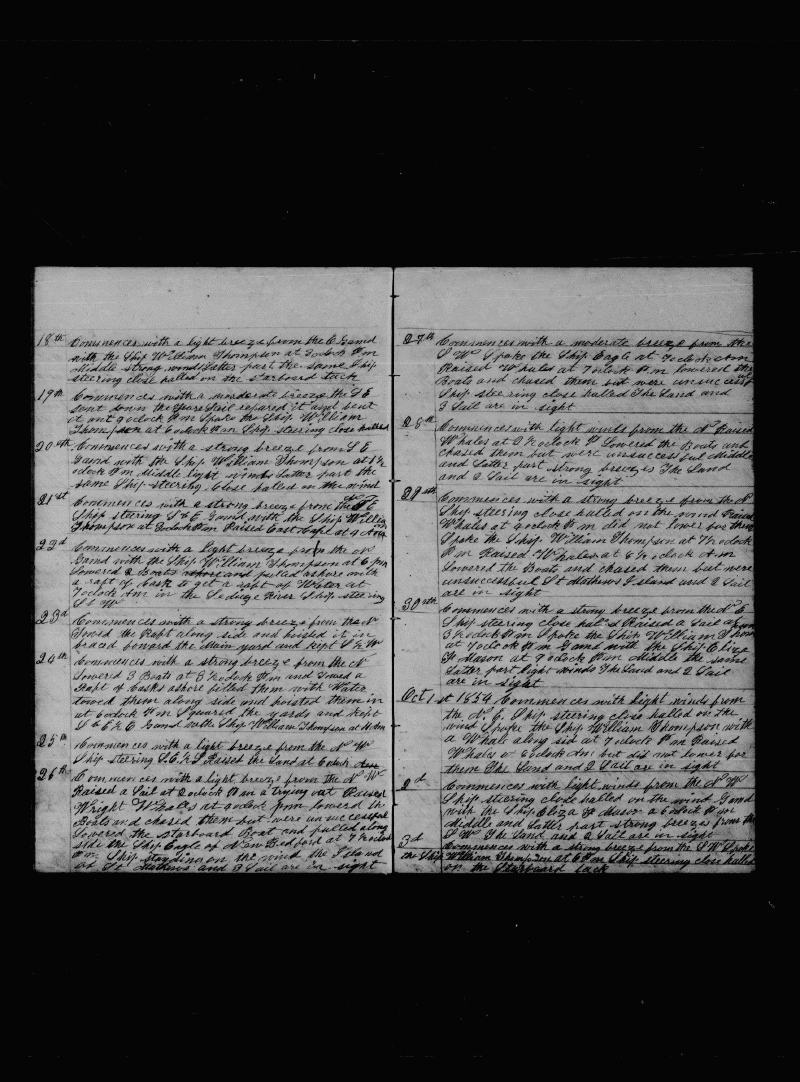 18th Commences with a light breeze from the E Gamd
with the Ship William Thompson at 7 oclock Pm
Middle strong wind Latter part the same Ship
steering close halled on the starboard tack
19th Commences with a moderate breeze the S E
sent down the Sail repared it and bent
it at 9 oclock Pm Spoke the Ship William
Thompson at 6 oclock Pm Ship steering close halled
20th Commences with a strong breeze from S E
Gamd with the Ship William Thompson at 1½
oclock Pm Middle light winds Latter part the
same Ship steering close halled on the wind
21st Commences with a strong breeze from the N E
Ship steering S E Gamd with the Ship William
Thompson at oclock Pm Raised East Cape at 9 Am
22d Commences with a light breeze from the N
Gamd with the Ship William Thompson at 6 pm
Lowered 2 Boats and pulled ashore with
a raft of Cask to get a raft of Water at
7 oclock Am in the River Ship steering
S W
23d Commences with a strong breeze from the N
Towed the Raft along side and hoisted it in
braced forward the Main yard and kept S E W
24th Commences with a strong breeze from the N
Lowered 3 Boats at 8½ oclock Am and Towed a
Raft of Casks ashore filled them with Water
towed them along side and hoisted them in
at 6 oclock Pm Squared the yards and kept
S & E Gamd with the Ship William Thompson at Am
25th Commences with a light breeze from the N W
Ship steering S. E. & S Raised the Land at 6 oclock Am
26th Commences with a light breeze from the N W
Raised a Sail at 2 oclock Pm a trying out Raised
Wright Whales at oclock pm lowered the
Boats and chased them but were unsuccessful
Lowered the starboard Boat and pulled along
side the Ship Eagle of New Bedford at 7½ oclock
Pm Ship standing on the wind the Island
of St Mathews and 3 Sail are in sight
27th Commences with a moderate breeze from the
S W Spoke the Ship Eagle at 7 oclock Am
Raised Whales at 7 oclock Am lowered the
Boats and chased them but were unsuccessf
Ship steering close halled The Land and
3 Sail are in sight
28th Commences with light winds from the N Raised
Whales at 2½ oclock P Lowered the Boats and
chased them but were unsuccessful Middle
and Latter part strong breezes The Land
and 2 Sail are in sight
29th Commences with a strong breeze from the N
Ship steering close halled on the wind Raised
Whales at 9 oclock Pm did not lower for them
Spoke the Ship William Thompson at 7½ oclock
Pm Raised Whales at 8½ oclock Am
Lowered the Boats and chased them but were
unsuccessful St Mathews Island and 2 Sail
are in sight
30th Commences with a strong breeze from the N E
Ship steering close hald Raised a Sail at
3½ oclock Pm Spoke the Ship William Thom
at 7 oclock Pm Gamd with the Ship Eliza
F Mason at 9 oclock Am Middle the same
Latter part light winds The Land and 2 Sail
are in sight
Oct 1st 1854 Commences with light winds from
the N. E. Ship steering close halled on the
wind Spoke the Ship William Thompson with
a Whale along sid at 7 oclock Pm Raised
Whales at 6 oclock Am but did not lower for
them The Land and 2 Sail are in sight
2d Commences with light winds from the N W
Ship steering close halled on the wind Gamd
with the Ship Eliza F Mason at 6 oclock Pm
Middle and Latter part strong breezes from the
S W The Land and 2 Sail are in sight
3d Commences with a strong breeze from the S W Spoke
the Ship William Thompson at 6 Pm Ship steering close halled
on the Starboard tack